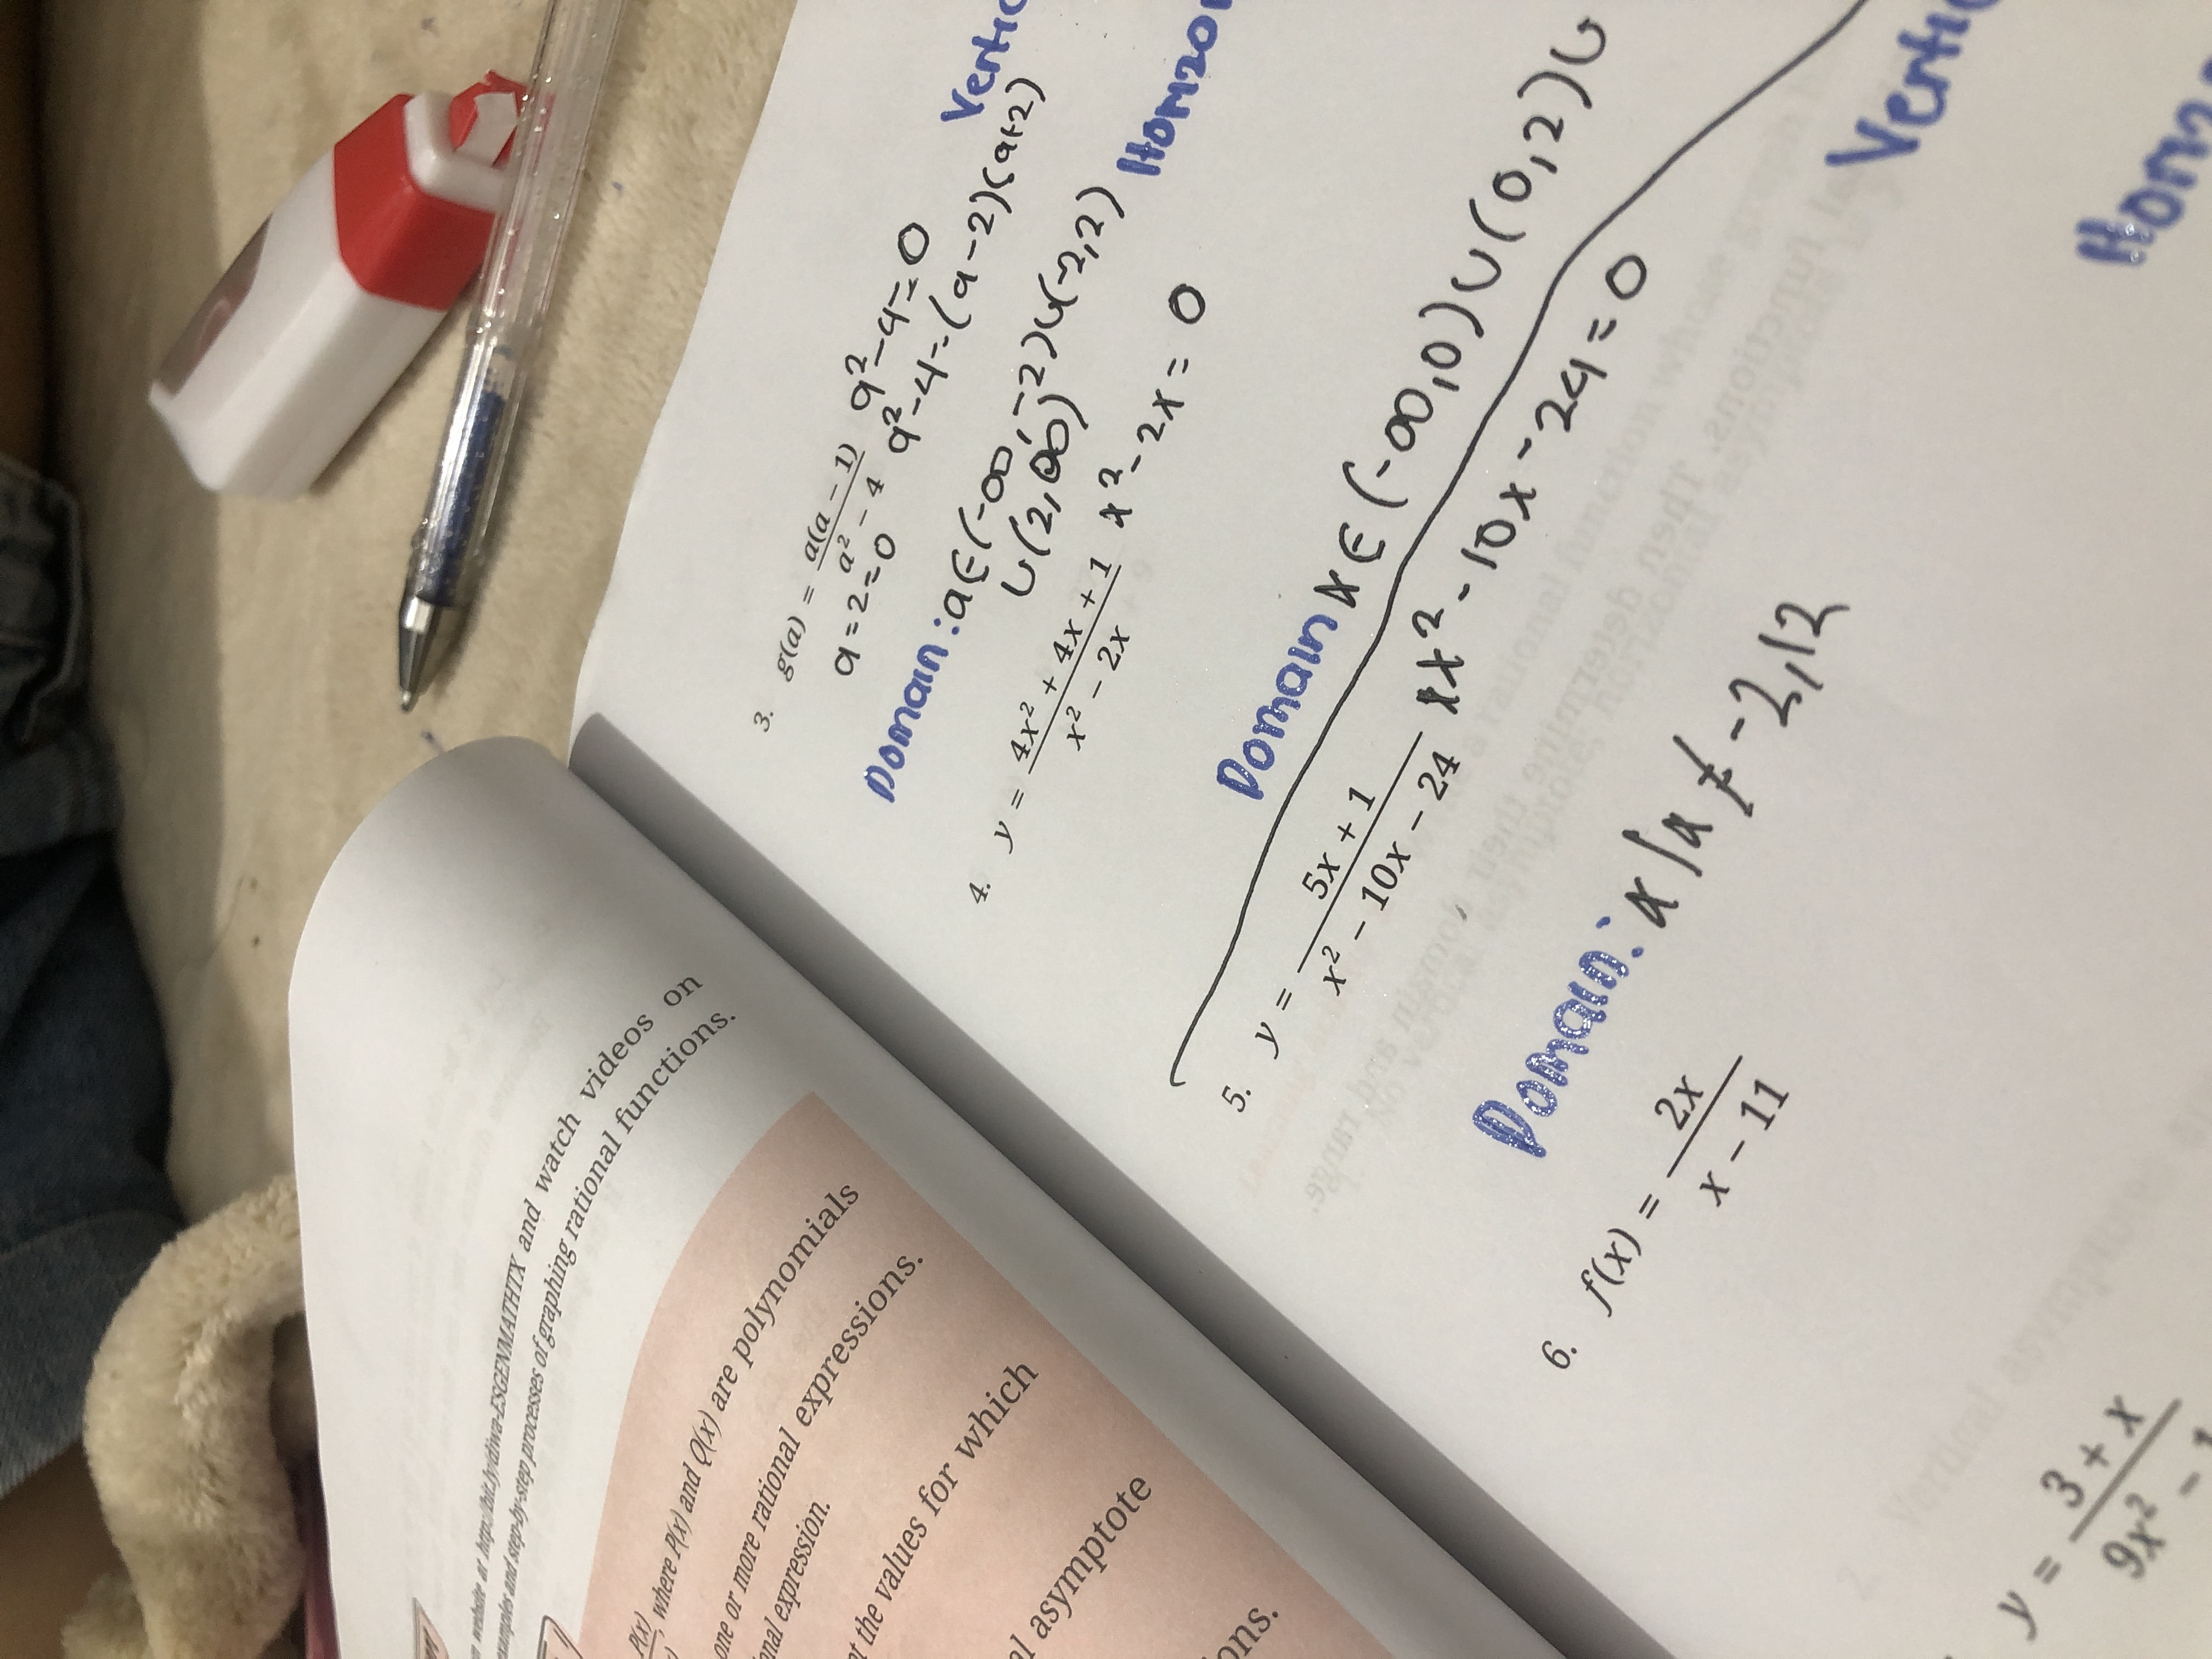 website at http://bit.ly/diwa-ESGENMATHTX and watch videos on
examples and step-by-step processes of graphing rational functions.
P(x), where P(x) and Q(x) are polynomials
one or more rational expressions.
expression.
the values for which
asymptote
3. g(a) = a(a − 1) / a² − 4
a²-4=0
a=2=0
a²-4=(a-2)(a+2)
Domain: a∈(-∞,-2)∪(-2,2)
∪(2,∞)
4. y = 4x² + 4x + 1 / x² − 2x
x²-2x=0
Domain x∈(-∞,0)∪(0,2)∪
5. y = 5x + 1 / x² − 10x − 24
x²-10x-24=0
Domain: x|x≠-2,12
6. f(x) = 2x / x − 11
y = 3 + x / 9x² −